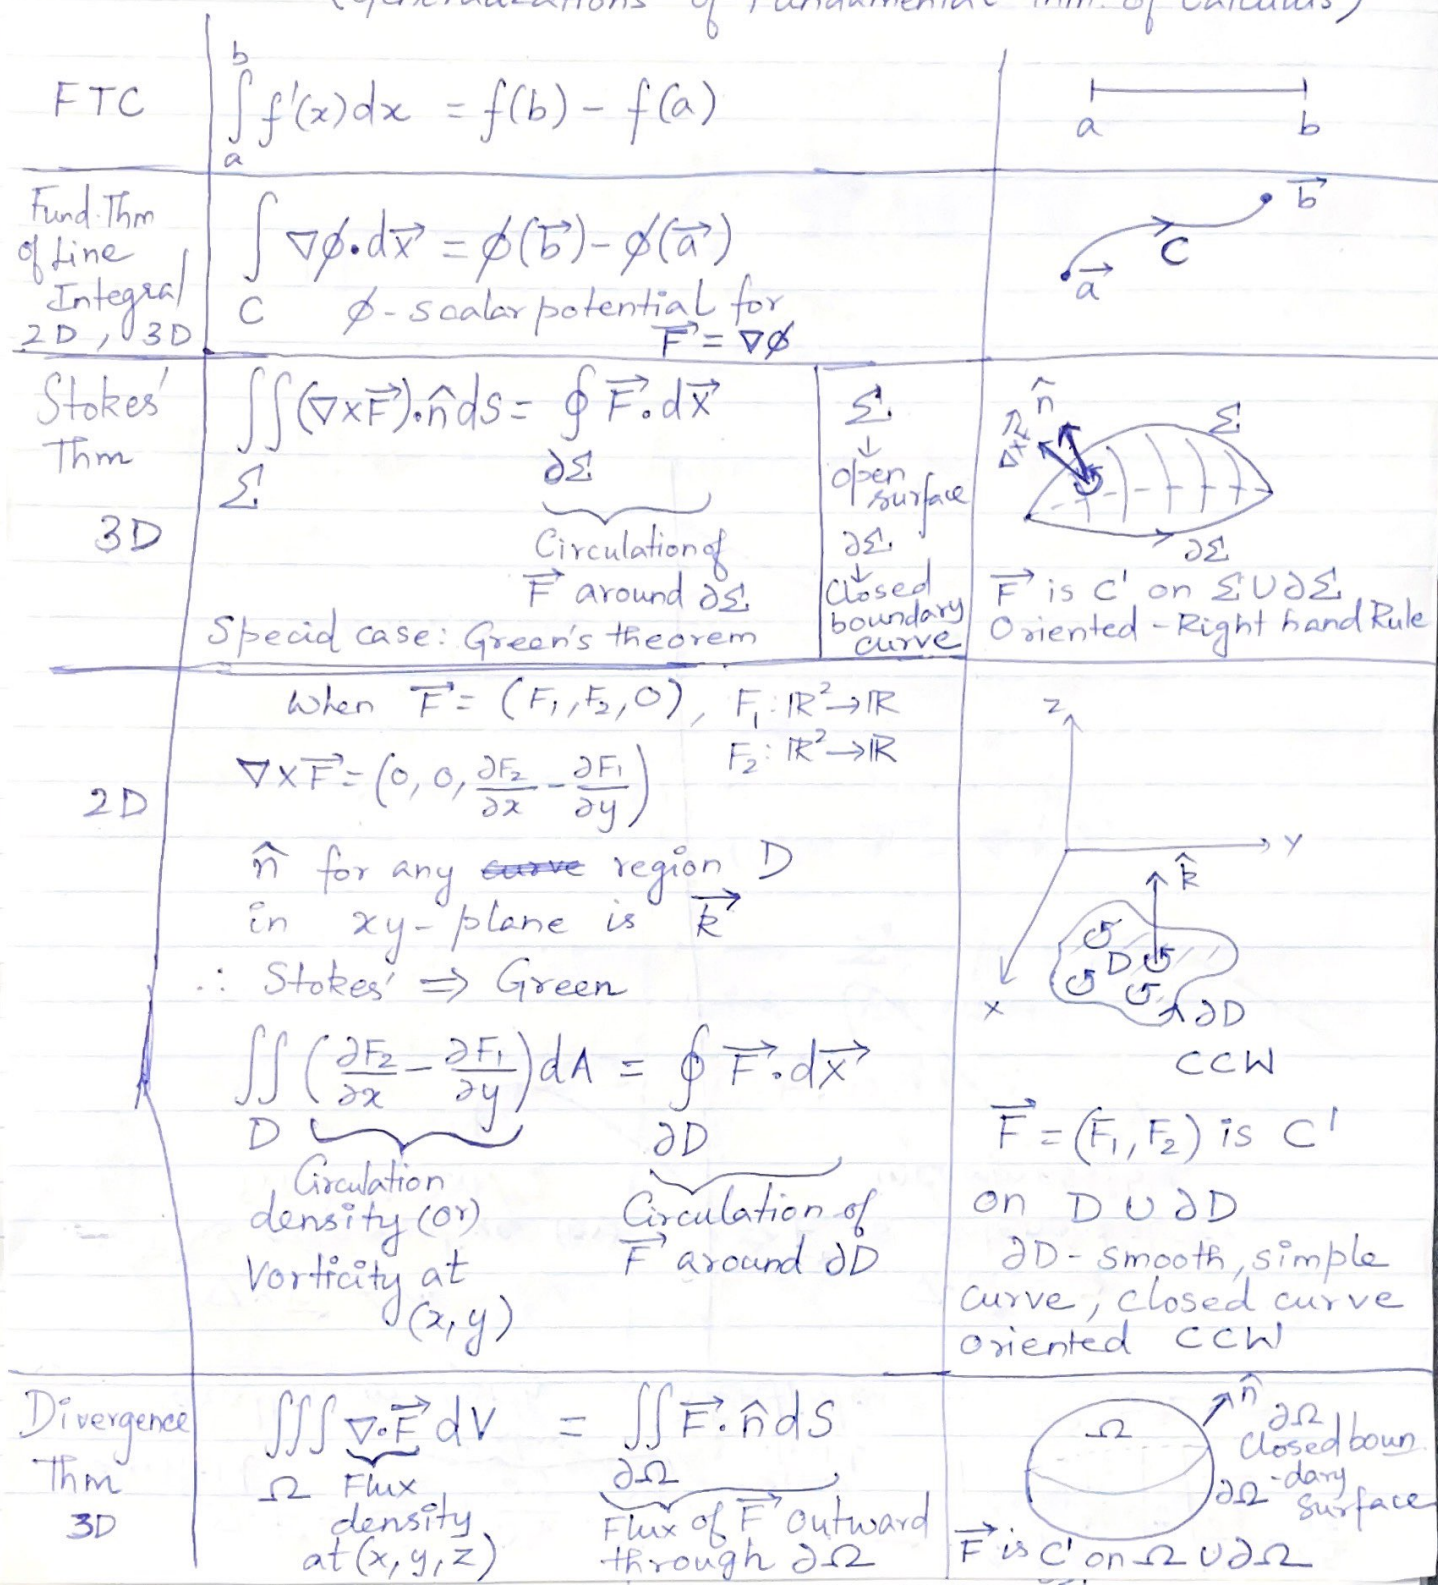 (Generalizations of Fundamental Thm. of Calculus)
FTC
∫_a^b f'(x)dx = f(b) - f(a)
a b
Fund. Thm
of Line
Integral
2D, 3D
∫_C ∇φ·dx⃗ = φ(b⃗) - φ(a⃗)
φ - scalar potential for
F⃗ = ∇φ
a⃗ C b⃗
Stokes'
Thm
3D
∬_Σ (∇×F⃗)·n̂ dS = ∮_∂Σ F⃗·dx⃗
Circulation of
F⃗ around ∂Σ
Special case: Green's theorem
Σ
↓
open
surface
∂Σ
↓
Closed
boundary
curve
n̂
∇×F⃗
Σ
∂Σ
F⃗ is C' on Σ∪∂Σ
Oriented - Right hand Rule
2D
When F⃗ = (F₁, F₂, 0), F₁: ℝ²→ℝ
F₂: ℝ²→ℝ
∇×F⃗ = (0, 0, ∂F₂/∂x - ∂F₁/∂y)
n̂ for any curve region D
in xy-plane is k⃗
∴ Stokes' ⇒ Green
∬_D (∂F₂/∂x - ∂F₁/∂y) dA = ∮_∂D F⃗·dx⃗
Circulation
density (or)
Vorticity at
(x, y)
Circulation of
F⃗ around ∂D
Z
Y
k̂
D
X
∂D
CCW
F⃗ = (F₁, F₂) is C'
on D ∪ ∂D
∂D - smooth, simple
curve, closed curve
oriented CCW
Divergence
Thm
3D
∭_Ω ∇·F⃗ dV = ∬_∂Ω F⃗·n̂ dS
Flux
density
at (x, y, z)
Flux of F⃗ outward
through ∂Ω
Ω
n̂
∂Ω
Closed boun
-dary
surface
∂Ω
F⃗ is C' on Ω ∪ ∂Ω